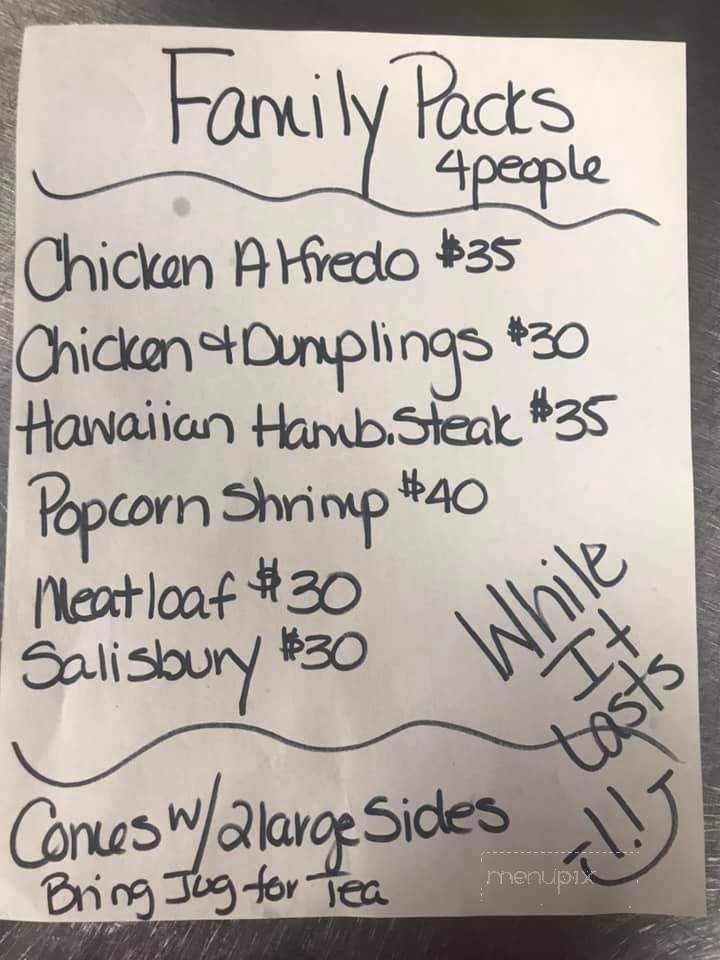 Family Packs
4people
Chicken Alfredo $35
Chicken & Dumplings $30
Hawaiian Hamb. Steak $35
Popcorn Shrimp $40
Meatloaf $30
Salisbury $30
While
It
Lasts
Comes w/ 2 large Sides
Bring Jug for Tea
menupix